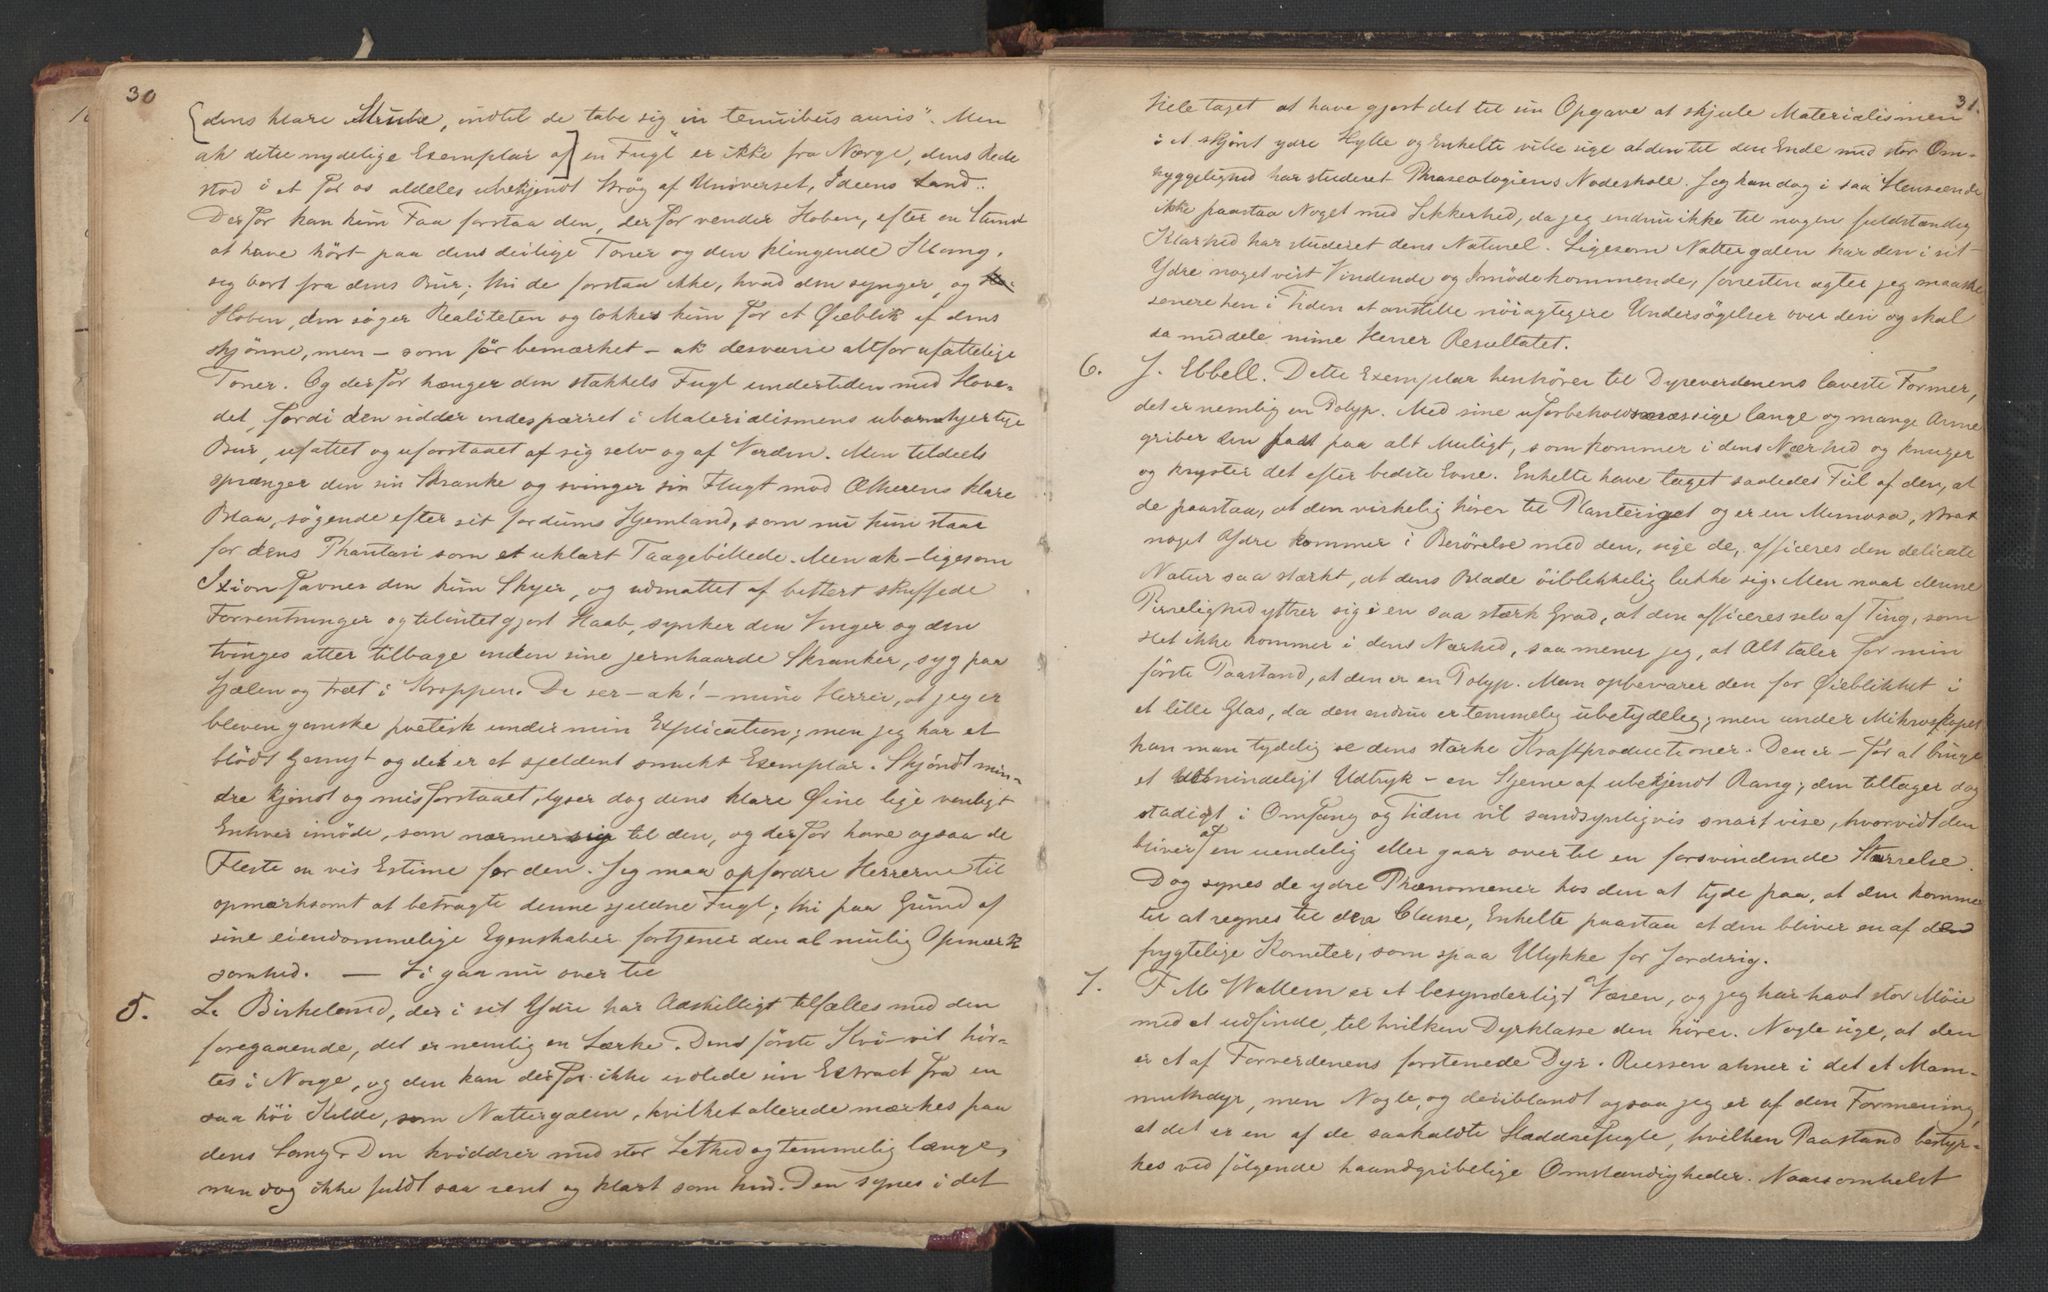 30
dens klare Strube, indtil de tabe sig in tenuibus auris". Men
ak dette nydelige Exemplar af en Fugl er ikke fra Norge, dens Rede
stod i et for os aldeles ubekjendt Strög af Universet, Ideens Land.
Derfor kan kun Faa forstaa den, derfor vender Hoben, efter en Stund
at have hört paa dens deilige Toner og den klingende Klang,
sig bort fra dens Bur; thi de forstaa ikke, hvad den synger, og
Hoben, den söger Realiteten og lokkes kun for et Öieblik af dens
skjönne, men - som för bemærket - ak desværre altfor ufattelige
Toner. Og derfor hænger den stakkels Fugl undertiden med Hove-
det, fordi den sidder indespærret i Materialismens ubarmhjertige
Bur, ufattet og uforstaaet af sig selv og af Verden. Men tildels
sprænger den sin Skranke og svinger sin Flugt mod Ætherens klare
Blaa, sögende efter sit fordums Hjemland, som nu kun staar
for dens Phantasi som et uklart Taagebillede. Men ak - ligesom
Ixion favner den kun Skyer, og udmattet af bittert skuffede
Forventninger og tilintetgjort Haab, synker den Vinger og den
tvinges atter tilbage inden sine jernhaarde Skranker, syg paa
Sjælen og træt i Kroppen. De ser - ak! - mine Herrer, at jeg er
bleven ganske poetisk under min Explication; men jeg har et
blödt Gemyt og det er et sjeldent smukt Exemplar. Skjöndt min-
dre kjendt og misforstaaet, lyser dog dens klare Öine lige venligt
Enhver imöde, som nærmer sig til den, og derfor have ogsaa de
Fleste en vis Estime for den. Jeg maa opfordre Herrerne til
opmærksomt at betragte denne sjeldne Fugl; thi paa Grund af
sine eiendommelige Egenskaber fortjener den al mulig Opmærk
somhed. — Vi gaa nu over til
5. L. Birkeland, der i sit Ydre har Adskilligt tilfælles med den
foregaaende, det er nemlig en Lærke. Dens förste Kvi-vit hör-
tes i Norge, og den kan derfor ikke udlede sin Extract fra en
saa höi Kilde, som Nattergalen, hvilket allerede mærkes paa
dens Sang. Den kviddrer med stor Lethed og temmelig længe,
men dog ikke fuldt saa rent og klart som hin. Den synes i det
31.
Hele taget at have gjort det til sin Opgave at skjule Materialismen
i et skjönt ydre Hylle og Enkelte ville sige at den til den Ende med stor Om-
hyggelighed har studeret Phraseologiens Nodeskole. Jeg kan dog i saa Henseende
ikke paastaa Noget med Sikkerhed, da jeg endnu ikke til nogen fuldstændig
Klarhed har studeret dens Naturel. Ligesom Nattergalen har den i sit
Ydre noget vist Vindende og Imödekommende; forresten agter jeg maaske
senere hen i Tiden at anstille nöiagtigere Undersögelser over den og skal
da meddele mine Herrer Resultatet.
6. J. Ebbell. Dette Exemplar henhörer til Dyreverdenens laveste Former,
det er nemlig en Polyp. Med sine uforholdsmæssige lange og mange Arme
griber den fast paa alt Muligt, som kommer i dens Nærhed og knuger
og kryster det efter bedste Evne. Enkelte have taget saaledes Feil af den, at
de paastaa, at den virkelig hörer til Planteriget og er en Mimosa, strax
noget Ydre kommer i Berörelse med den, sige de, afficeres den delicate
Natur saa stærkt, at dens Blade öiblikkelig lukke sig. Men naar denne
Pirrelighed yttrer sig i en saa stærk Grad, at den afficeres selv af Ting, som
slet ikke kommer i dens Nærhed, saa mener jeg, at Alt taler for min
förste Paastand, at den er en Polyp. Man opbevarer den for Öieblikket i
et lille Glas, da den endnu er temmelig ubetydelig; men under Mikroskopet
kan man tydelig se dens stærke Kraftproductioner. Den er - for at bruge
et almindeligt Udtryk - en Stjerne af ubekjendt Rang; den tiltager dog
stadigt i Omfang og Tiden vil sandsynligvis snart vise, hvorvidt den
bliver af en uendelig eller gaar over til en forsvindende Størrelse.
Dog synes de ydre Phænomener hos den at tyde paa, at den kommer
til at regnes til den Classe, Enkelte paastaa at den bliver en af de
frygtelige Kometer, som spaa Ulykke for Jorderig.
7. F M Wallem er et besynderligt Væsen, og jeg har havt stor Möie
med at udfinde, til hvilken Dyrklasse den hörer. Nogle sige, at den
er et af Forverdenens forstenede Dyr. Russen ahner i det et Mam-
muthdyr, men Nogle, og deriblandt ogsaa jeg er af den Formening,
at det er en af de saakaldte Sladdrefugle, hvilken Paastand bestyr-
kes ved fölgende haandgribelige Omstændigheder. Naarsomhelst